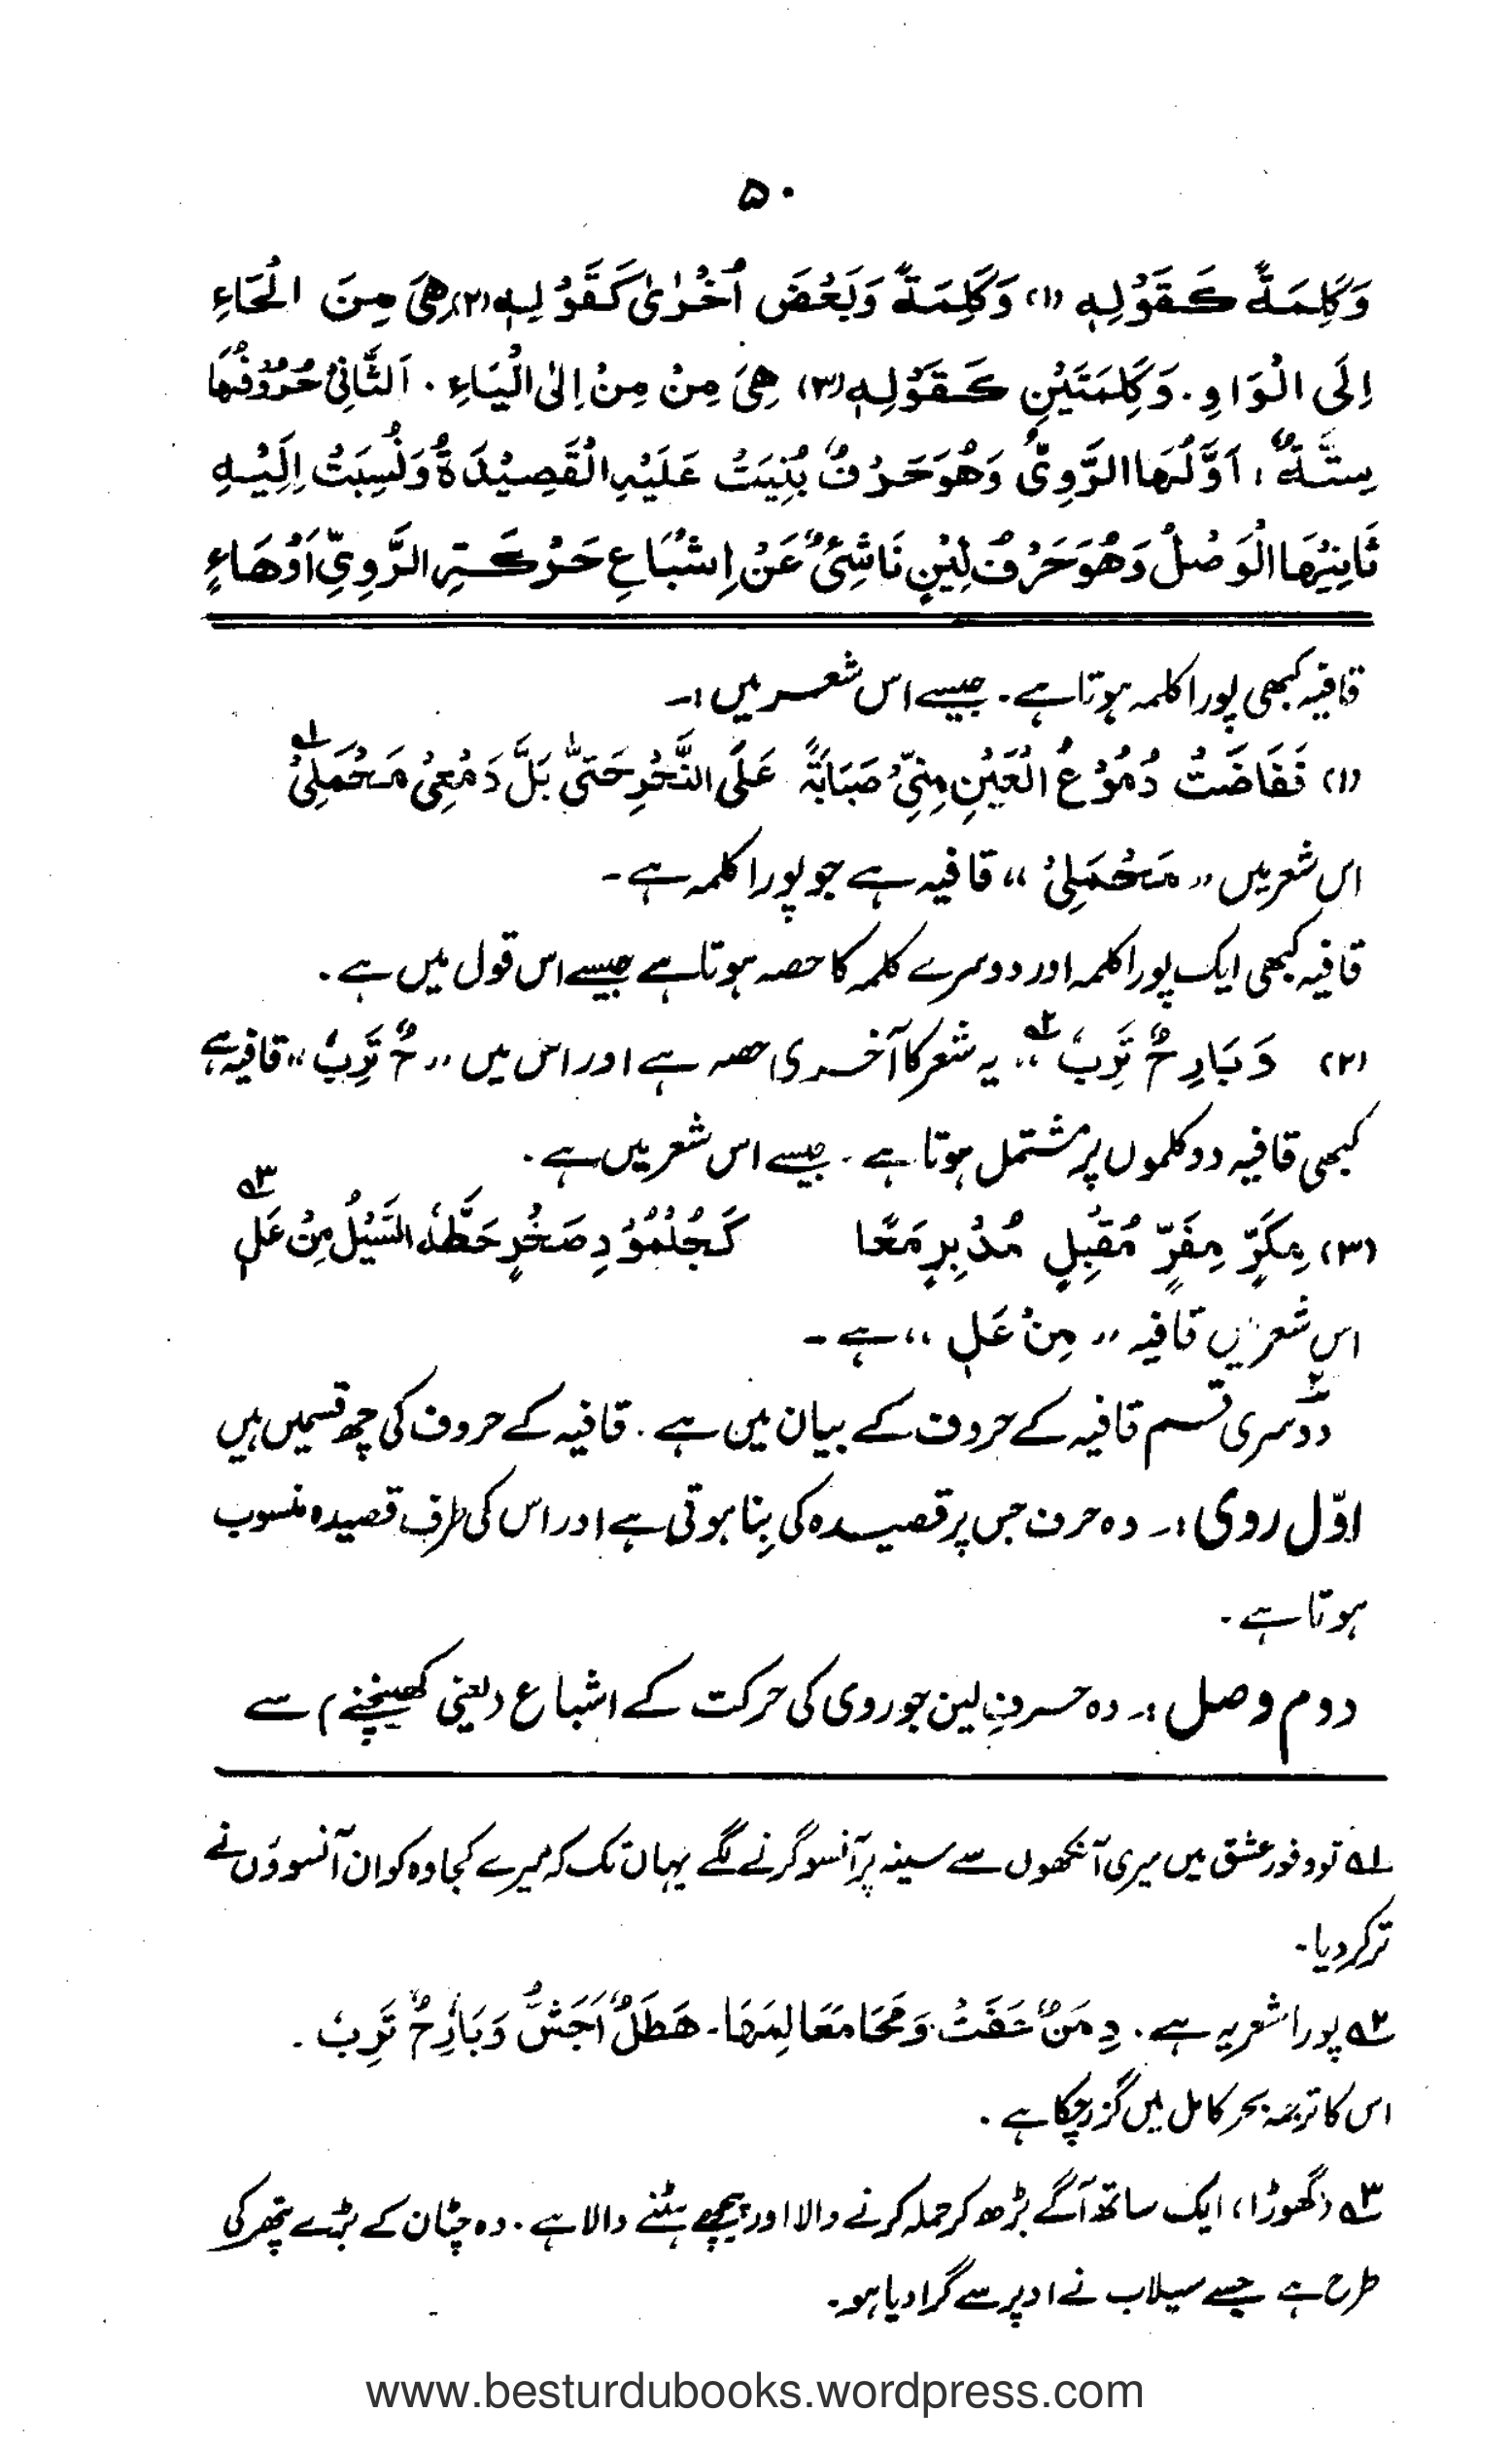 ۵۰
وَكَلِمَةً كَقَوْلِهٖ (۱) وَكَلِمَةً وَبَعْضَ اُخْرٰى كَقَوْلِهٖ (۲) هِىَ مِنَ الْحَاءِ
اِلَى الْوَاوِ. وَكَلِمَتَيْنِ كَقَوْلِهٖ (۳) هِىَ مِنْ مِنْ اِلَى الْيَاءِ. اَلثَّانِىْ حُرُوْفُهَا
سِتَّةٌ، اَوَّلُهَا الرَّوِىُّ وَهُوَ حَرْفٌ بُنِيَتْ عَلَيْهِ الْقَصِيْدَةُ وَنُسِبَتْ اِلَيْهِ
ثَانِيْهَا الْوَصْلُ وَهُوَ حَرْفُ لِيْنٍ نَاشِئٌ عَنْ اِشْبَاعِ حَرْكَةِ الرَّوِىِّ اَوْهَاءٍ
قافیہ کبھی پورا کلمہ ہوتا ہے۔ جیسے اس شعر میں :۔
(۱) فَفَاضَتْ دُمُوْعُ الْعَيْنِ مِنِّىْ صَبَابَةً عَلَى النَّحْرِ حَتّٰى بَلَّ دَمْعِىْ مَحْمَلِىْ ؁۱
اس شعر میں ،، مَحْمَلِىْ ،، قافیہ ہے جو پورا کلمہ ہے ۔
قافیہ کبھی ایک پورا کلمہ اور دوسرے کلمہ کا حصہ ہوتا ہے جیسے اس قول میں ہے۔
(۲) وَبَارِحٌ تَرِبٗ ؁۲ ،، یہ شعر کا آخری حصہ ہے اور اس میں ،، حٌ تَرِبٗ ،، قافیہ ہے
کبھی قافیہ دو کلموں پر مشتمل ہوتا ہے۔ جیسے اس شعر میں ہے۔
(۳) مِكَرٍّ مِفَرٍّ مُقْبِلٍ مُدْبِرٍ مَعًا كَجُلْمُوْدِ صَخْرٍ حَطَّهُ السَّيْلُ مِنْ عَلٖ ؁۳
اس شعر میں قافیہ ،، مِنْ عَلٖ ،، ہے ۔
دوسری قسم قافیہ کے حروف کے بیان میں ہے۔ قافیہ کے حروف کی چھ قسمیں ہیں
اوّل روی :۔ وہ حرف جس پر قصیدہ کی بِنا ہوتی ہے اور اس کی طرف قصیدہ منسوب
ہوتا ہے۔
دوم وصل :۔ وہ حرفِ لین جو روی کی حرکت کے اشباع (یعنی کھینچنے) سے
؁۱ تو وفورِ عشق میں میری آنکھوں سے سینہ پر آنسو گرنے لگے یہاں تک کہ میرے کجاوہ کو ان آنسوؤں نے
تر کر دیا۔
؁۲ پورا شعر یہ ہے۔ دِمَنٌ عَفَتْ وَمَحَا مَعَالِمَهَا۔ هَطَلٌ اَجَشُّ وَبَارِحٌ تَرِبٗ۔
اس کا ترجمہ بحر کامل میں گزر چکا ہے۔
؁۳ (گھوڑا) ایک ساتھ آگے بڑھ کر حملہ کرنے والا اور پیچھے ہٹنے والا ہے۔ وہ چٹان کے بڑے پتھر کی
طرح ہے جسے سیلاب نے اوپر سے گرا دیا ہو۔
www.besturdubooks.wordpress.com